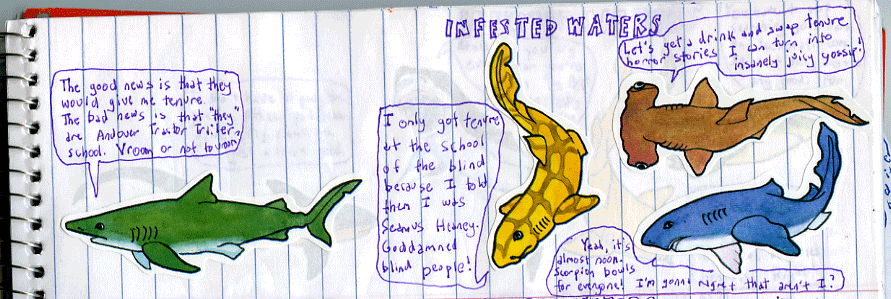 INFESTED WATERS
The good news is that they
would give me tenure.
The bad news is that "they"
are Andover Tractor Trailer
school. Vroom or not to vroom
I only got tenure
at the school
of the blind
because I told
them I was
Seamus Heaney.
Goddamned
blind people!
Let's get a drink and swap tenure
horror stories I can turn into
insanely juicy gossip!
Yeah, it's
almost noon.
Scorpion bowls
for everyone! I'm gonna regret that aren't I?